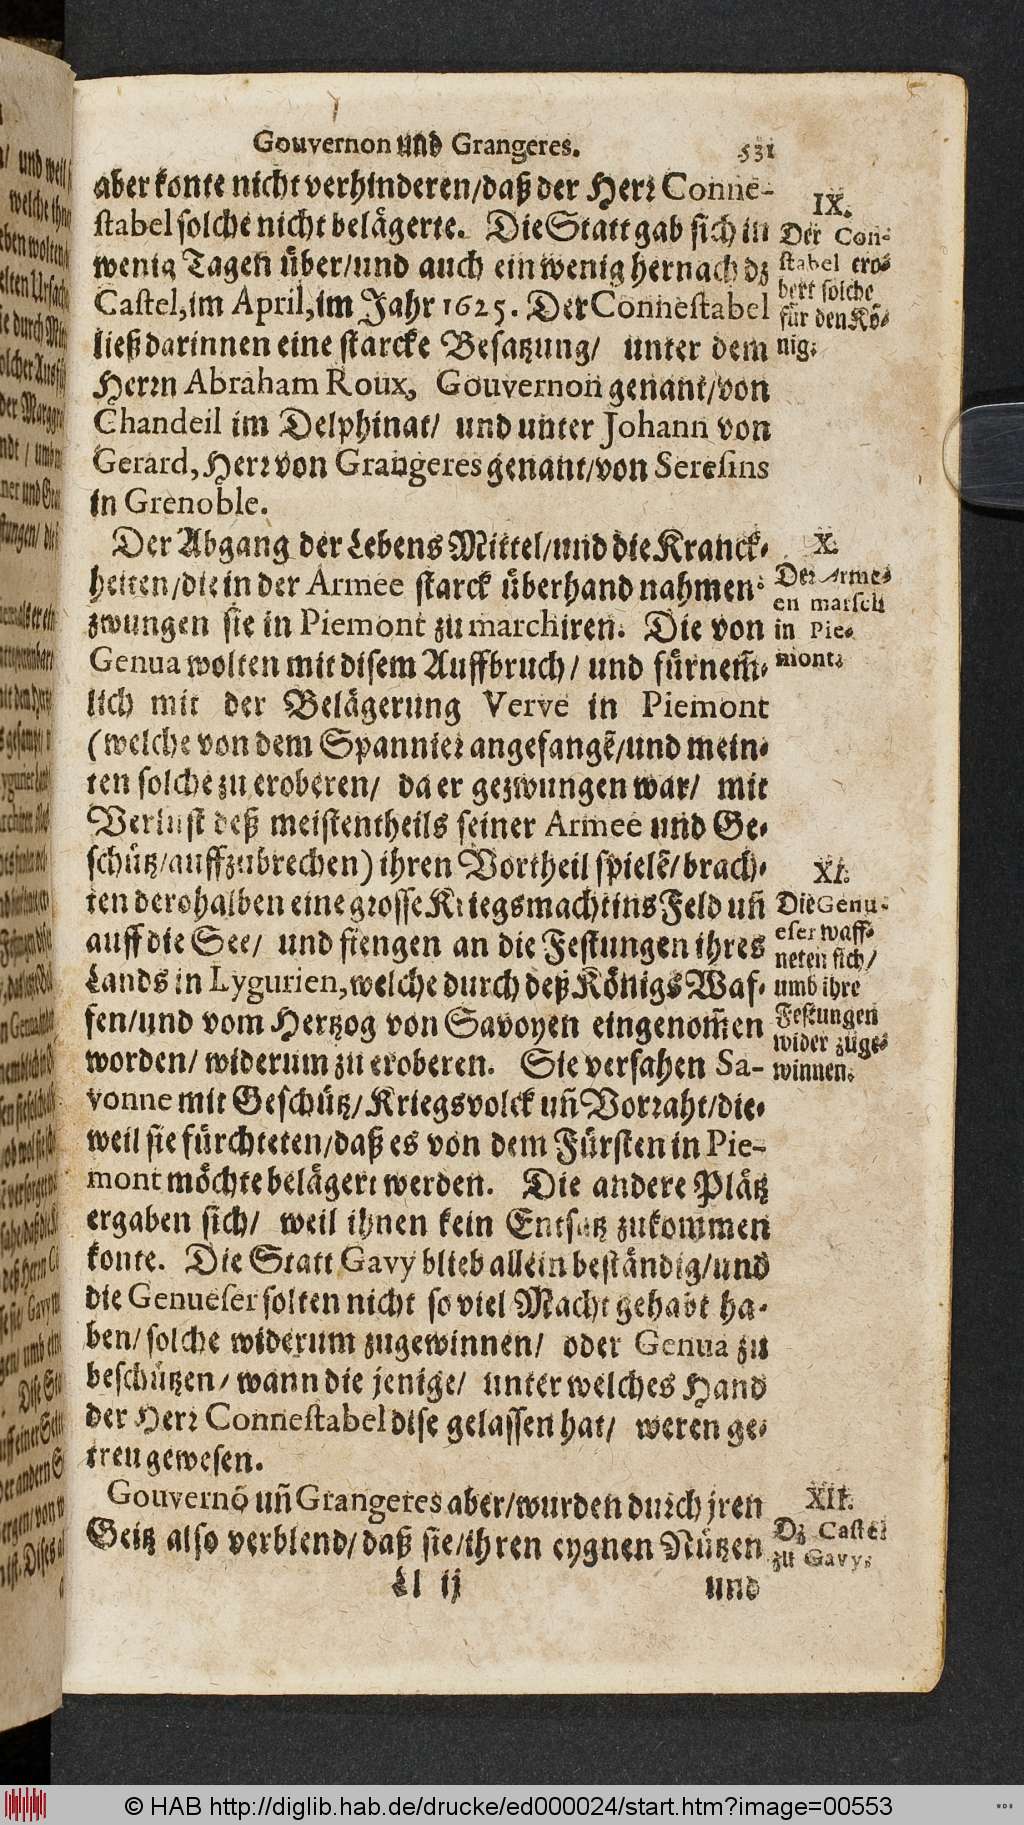 Gouvernon und Grangeres. 531
aber konte nicht verhinderen/daß der Herr Conne-
stabel solche nicht belägerte. Die Statt gab sich in
wenig Tagen über/und auch ein wenig hernach dz
Castel, im April, im Jahr 1625. Der Connestabel
ließ darinnen eine starcke Besatzung/ unter dem
Herrn Abraham Roux, Gouvernon genant/von
Chandeil im Delphinat/ und unter Johann von
Gerard, Herr von Grangeres genant/von Seresins
in Grenoble.
IX.
Der Con-
stabel ero-
bert solche
für den Kö-
nig.
Der Abgang der Lebens Mittel/und die Kranck-
heiten/die in der Armee starck überhand nahmen:
zwungen sie in Piemont zu marchiren. Die von
Genua wolten mit disem Auffbruch/ und fürnem̃-
lich mit der Belägerung Verve in Piemont
(welche von dem Spannier angefangẽ/und mein-
ten solche zu eroberen/ da er gezwungen war/ mit
Verlust deß meistentheils seiner Armee und Ge-
schütz/auffzubrechen) ihren Vortheil spielẽ/brach-
ten derohalben eine grosse Kriegsmacht ins Feld uñ
auff die See/ und fiengen an die Festungen ihres
Lands in Lygurien, welche durch deß Königs Waf-
fen/und vom Hertzog von Savoyen eingenom̃en
worden/ widerum zu eroberen. Sie versahen Sa-
vonne mit Geschütz/Kriegsvolck uñ Vorraht/die-
weil sie fürchteten/daß es von dem Fürsten in Pie-
mont möchte belägert werden. Die andere Plätz
ergaben sich/ weil ihnen kein Entsatz zukommen
konte. Die Statt Gavy blieb allein beständig/und
die Genueser solten nicht so viel Macht gehabt ha-
ben/solche widerum zugewinnen/ oder Genua zu
beschützen/wann die jenige/ unter welches Hand
der Herr Connestabel dise gelassen hat/ weren ge-
treu gewesen.
X.
Der Arme-
en marsch
in Pie-
mont.
XI.
Die Genu-
eser waff-
neten sich/
umb ihre
Festungen
wider zuge-
winnen.
Gouvernõ uñ Grangeres aber/wurden durch jren
Geitz also verblend/daß sie/ihren eygnen Nützen
XII.
Dz Castel
zu Gavy.
Ll ij und
© HAB http://diglib.hab.de/drucke/ed000024/start.htm?image=00553